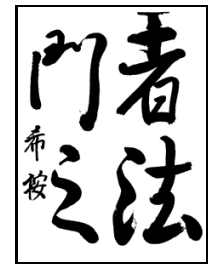 者法
門之
希按